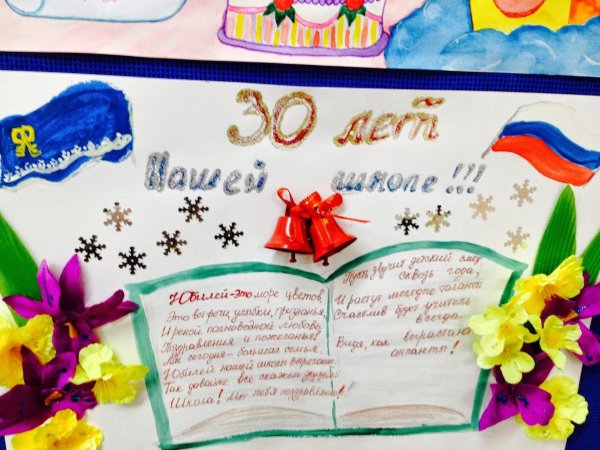 30 лет
Нашей школе!!!
Юбилей-это море цветов,
Это встречи, улыбки, признанья,
И рекой полноводной любовь,
Поздравления и пожелания!
Мы сегодня - большая семья.
Юбилей нашей школы встречаем.
Так давайте все скажем, друзья:
Школа! Мы тебя поздравляем!
Пусть звучит детский смех
сквозь года,
И растут молодые таланты
Счастлив будет учитель
всегда
Видя, как вырастают
атланты!